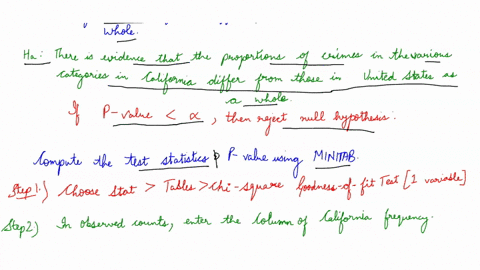 whole.
Ha: There is evidence that the proportions of crimes in the various
categories in California differ from those in United States as
a whole.
If P-value < α, then reject null hypothesis.
Compute the test statistics & P-value using MINITAB.
Step 1.) Choose Stat > Tables > Chi-square Goodness-of-fit Test [1 variable]
Step 2) In observed counts, enter the column of California frequency.